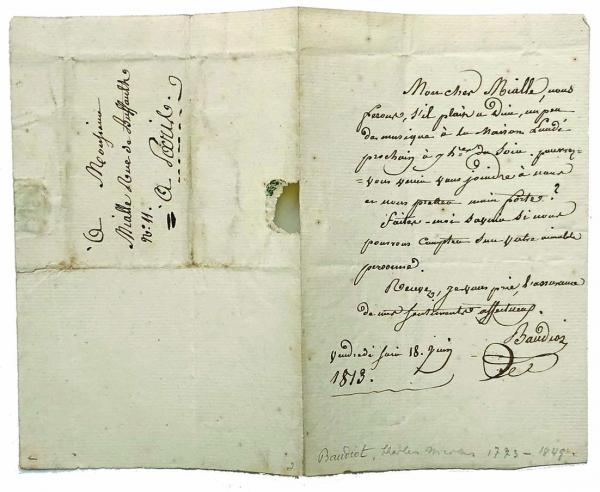 À Monsieur
Mialle Rue de Buffault
N.° 11.
À Paris.
Mon cher Mialle, nous
ferons, s'il plait à Dieu, un peu
de musique à la maison Lundi
prochain à 7 h.res du Soir, pourrez
=vous venir vous joindre à nous
et nous prêter main forte ?
Faites-moi savoir si nous
pourrons compter sur votre aimable
personne.
Recevez, je vous prie, l'assurance
de mes sentiments affectueux.
Baudiot
Vendredi soir 18. Juin
1813.
Baudiot, Charles Nicolas 1773 - 1849